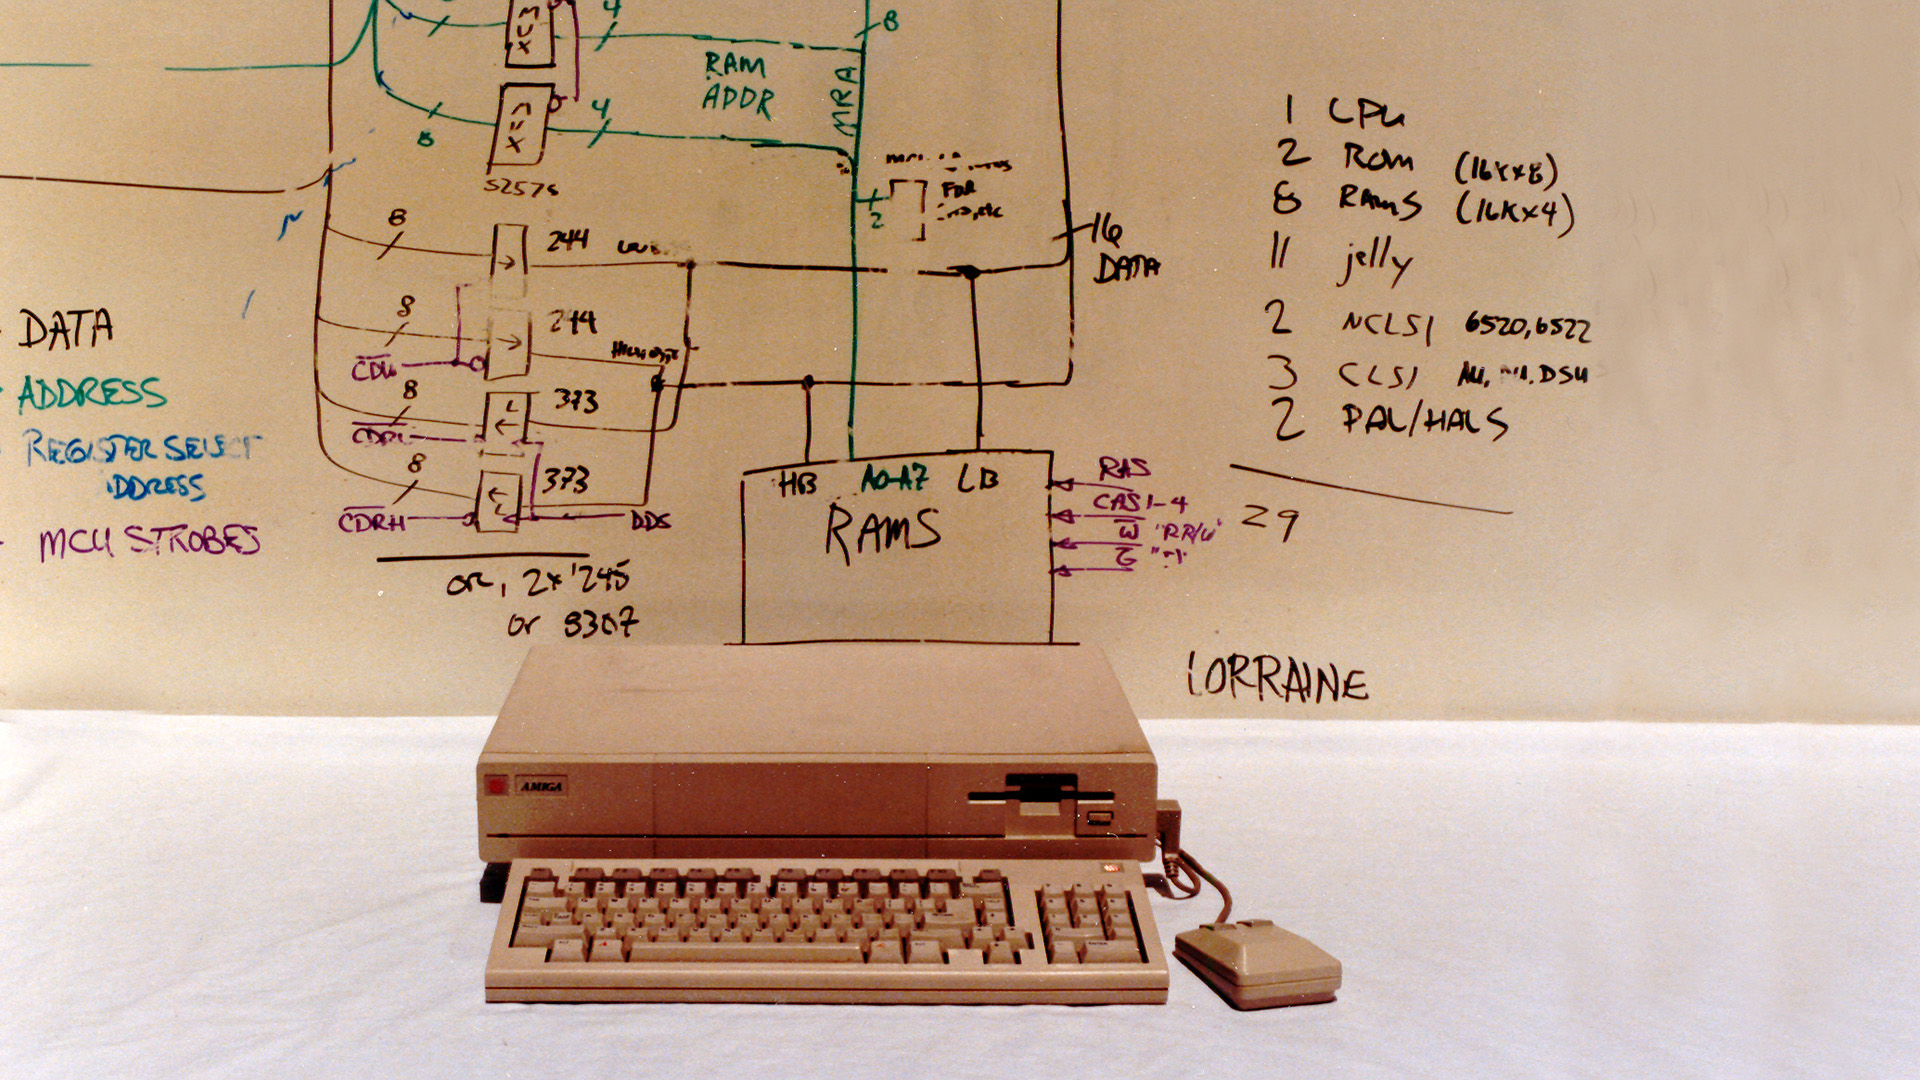 MUX
4
8
RAM
ADDR
MRA
MUX
8
4
S257s
2
FOR
8
244
16
DATA
8
244
CDR
8
373
8
373
CDRH
DDS
or, 2x '245
or 8307
DATA
ADDRESS
REGISTER SELECT
DDRESS
MCU STROBES
HB A0-A7 LB
RAMS
RAS
CAS 1-4
W "RR/W"
1 CPU
2 ROM (16K×8)
8 RAMS (16K×4)
11 jelly
2 NCLSI 6520,6522
3 CLSI DSU
2 PAL/HALS
29
LORRAINE
AMIGA